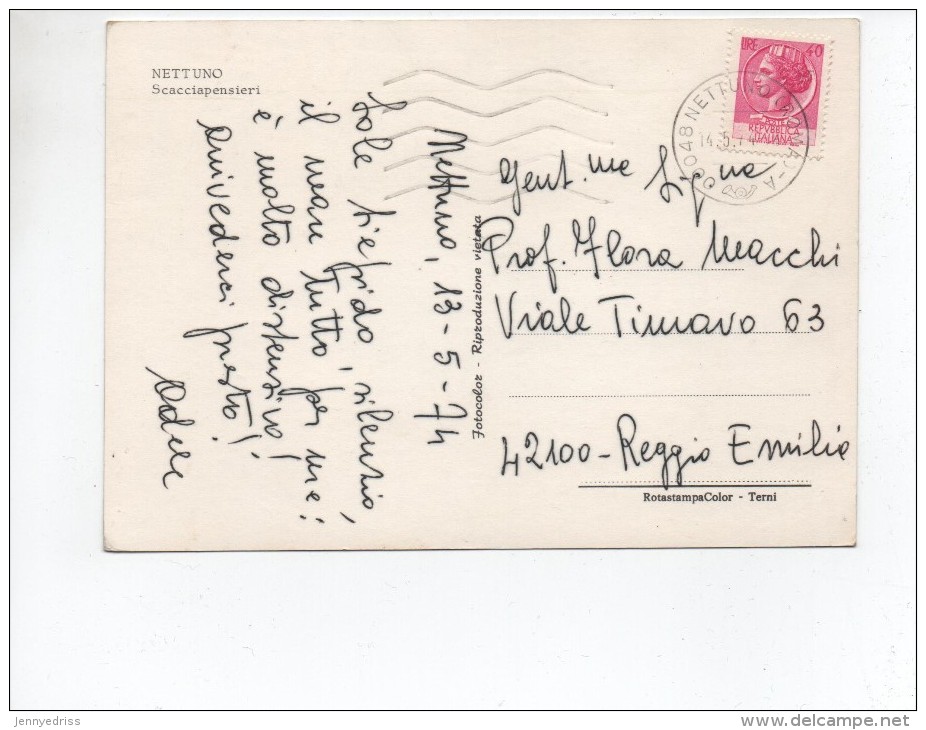 NETTUNO
Scacciapensieri
Nettuno, 13-5-74
Sole tiepido, silenzio,
il mare tutto per me:
è molto distensivo!
Arrivederci presto!
Adele
Fotocolor - Riproduzione vietata
LIRE 40
POSTE
REPVBBLICA
ITALIANA
00048 NETTUNO (ROMA)-A
14.5.74
Gent.ma Sig.na
Prof. Flora Macchi
Viale Timavo 63
42100-Reggio Emilia
RotastampaColor - Terni
jennyedriss
http://www.delcampe.net